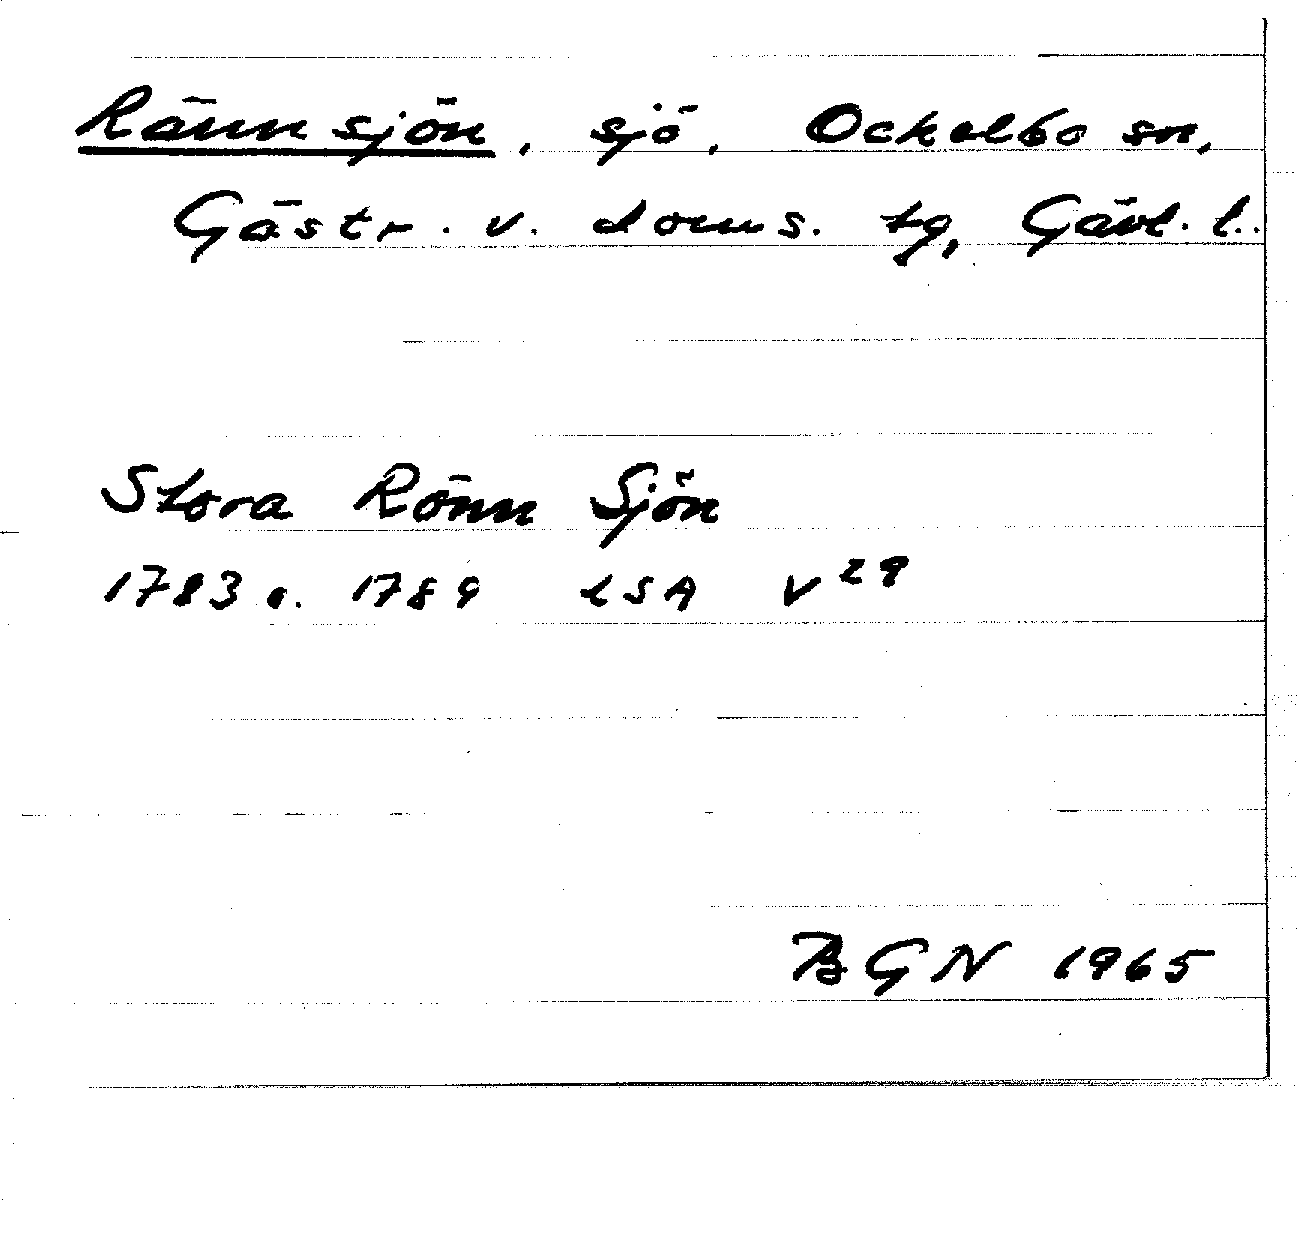 Rönnsjön, sjö, Ockelbo sn,
Gästr. v. doms. tg, Gävl. l.
Stora Rönn Sjön
1783 o. 1789 LSA V 29
BGN 1965